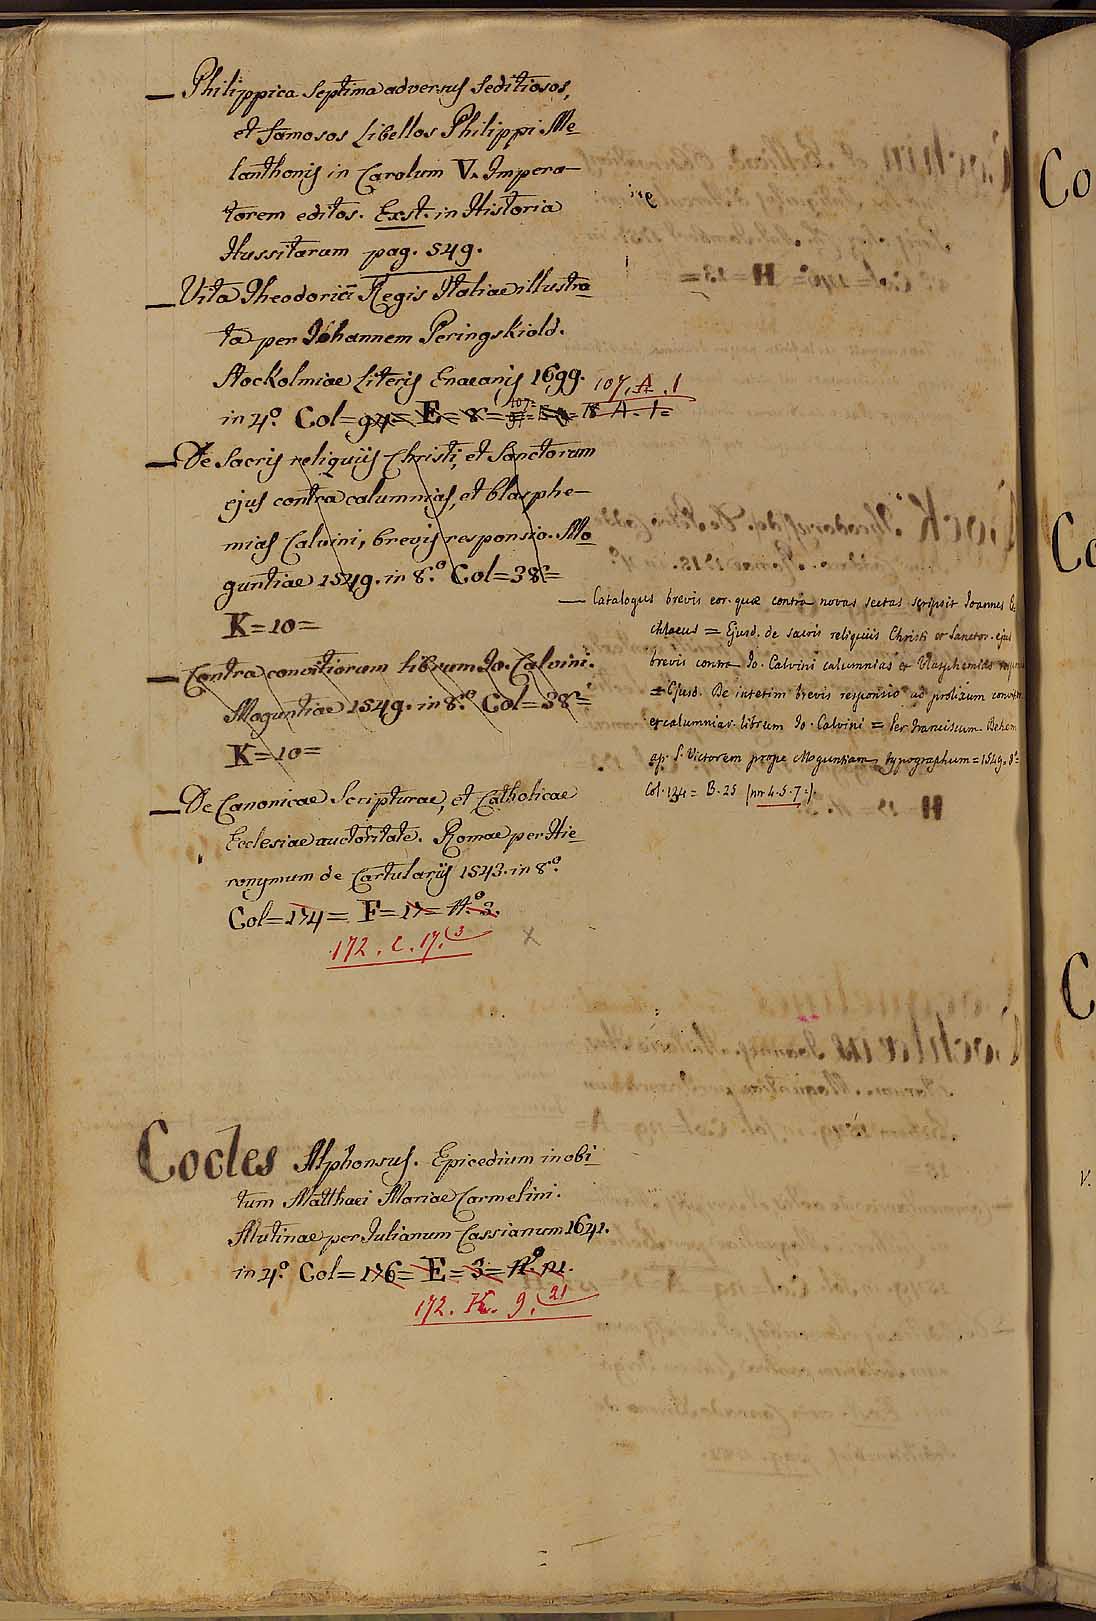 — Philippica Septima adversus Seditiosos,
et famosos Libellos Philippi Me
lanthonis in Carolum V. Impera-
torem editos. Exst. in Historia
Hussitarum pag. 549.
— Vita Theodorici Regis Italiae illustra
ta per Johannem Peringskiold.
Stockolmiae Literis Enaeanis 1699.
107. A. 1
in 4.° Col=94= E= 8= 107= 18 A. 1=
— De Sacris reliquiis Christi, et Sanctorum
ejus contra calumnias, et blasphe-
mias Calvini, brevis responsio. Mo
guntiae 1549. in 8.° Col=38=
K=10=
— Contra convitiorum librum Jo. Calvini.
Moguntiae 1549. in 8.° Col=38=
K=10=
— De Canonicae Scripturae, et Catholicae
Ecclesiae auctoritate. Romae per Hie
ronymum de Cartulariis 1543. in 8.°
Col=174= F=17= N.° 3.
172. C. 17. 3
— Catalogus brevis eor. quae contra novas sectas scripsit Joannes
chlaeus = Ejusd. de sacris reliquiis Christi et Sanctor. ejus
brevis contra Jo. Calvini calumnias et blasphemias
= Ejusd. De interim brevis responsio ad prolixum
et calumniar. librum Jo. Calvini = Per Franciscum Behem
ap. S. Victorem prope Moguntiam typographum = 1549. 8.°
Col. 124 = B. 25 (nn 4. 5. 7.)
Cocles Alphonsus. Epicedium in obi
tum Matthaei Mariae Carmelini.
Mutinae per Julianum Cassianum 1641.
in 4.° Col=176= E=3= N.° 21.
172. K. 9. 21
Co
Co
C
V.